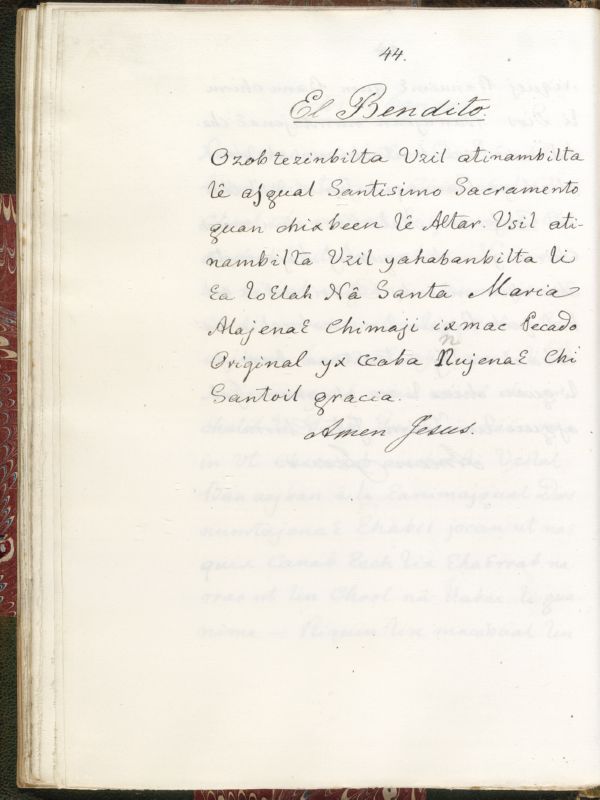 44.
El Bendito.
Ozobtezinbilta Uzil atinambilta
lê ajgual Santisimo Sacramento
guan chixbeen lê Altar. Usil ati-
nambilta Uzil yahabanbilta li
Ɛa loƐlah Nâ Santa Maria
MajenaƐ Chimaji ixmac Pecado
Original yx ccaba NujenaƐ Chi
Santoil gracia.
Amen Jesus.